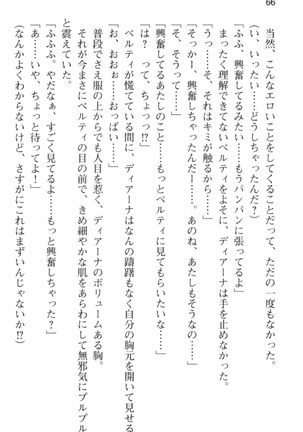 66
当然、こんなエロいことをしてくることだって、ただの一度もなかった。
（い、いったい……どうしちゃったんだ？）
「ふふ、興奮してるみたい……もうパンパンに張ってるよ」
まったく理解できないベルティをよそに、ディアーナは手を止めなかった。
「うっ……そ、それはキミが触るから……」
「そっかー。興奮しちゃったんだー……。あのね、あたしもそうなの……」
「そ、そうって……」
「興奮してるあたしのこと……もっとベルティに見てもらいたいの……」
「は？　って、ちょっっ⁉」
ベルティが慌てている間に、ディアーナはなんの躊躇もなく自分の胸元を開いて見せる
「お、おおぉ……おっぱい……」
普段でさえ服の上からでも人目を惹く、ディアーナのボリュームある胸。
それが今まさにベルティの目の前で、きめ細やかな肌をあらわにして無邪気にプルプル
と震えていた。
「ふふふ。やだなぁ、すごく見てるよ……もっと興奮しちゃった？」
「あ……いや、ちょっと待ってよ！」
（なんかよくわからないけど、さすがにこれはまずいんじゃないか⁉）